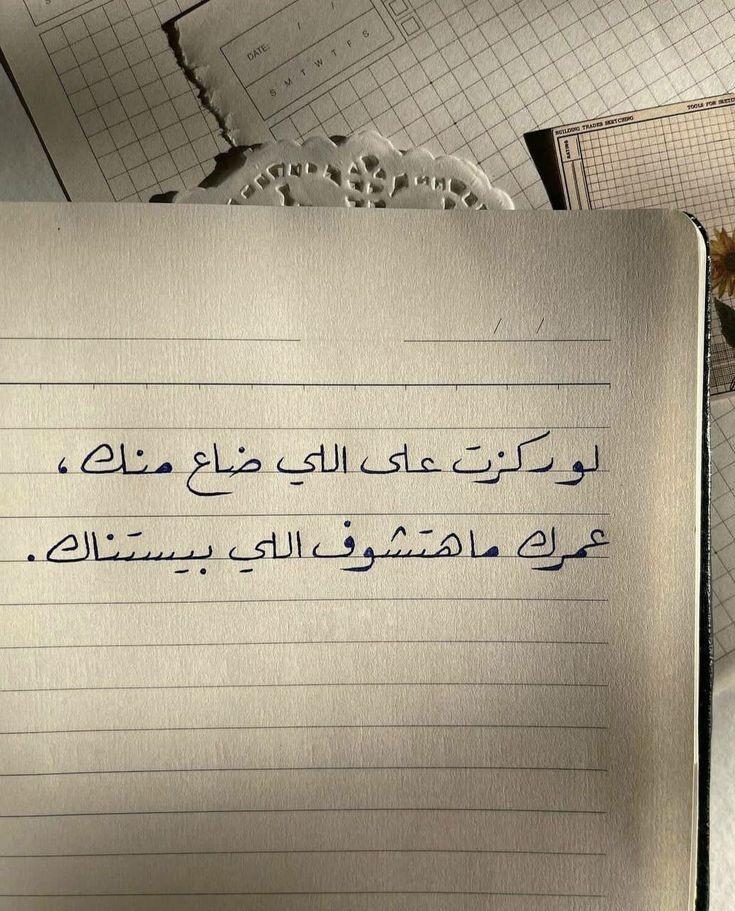 DATE: / /
S M T W T F S
BUILDING TRADES SKETCHING
TOOLS FOR
RATING
/ /
لو ركزت على اللي ضاع منك،
عمرك ماهتشوف اللي بيستناك.